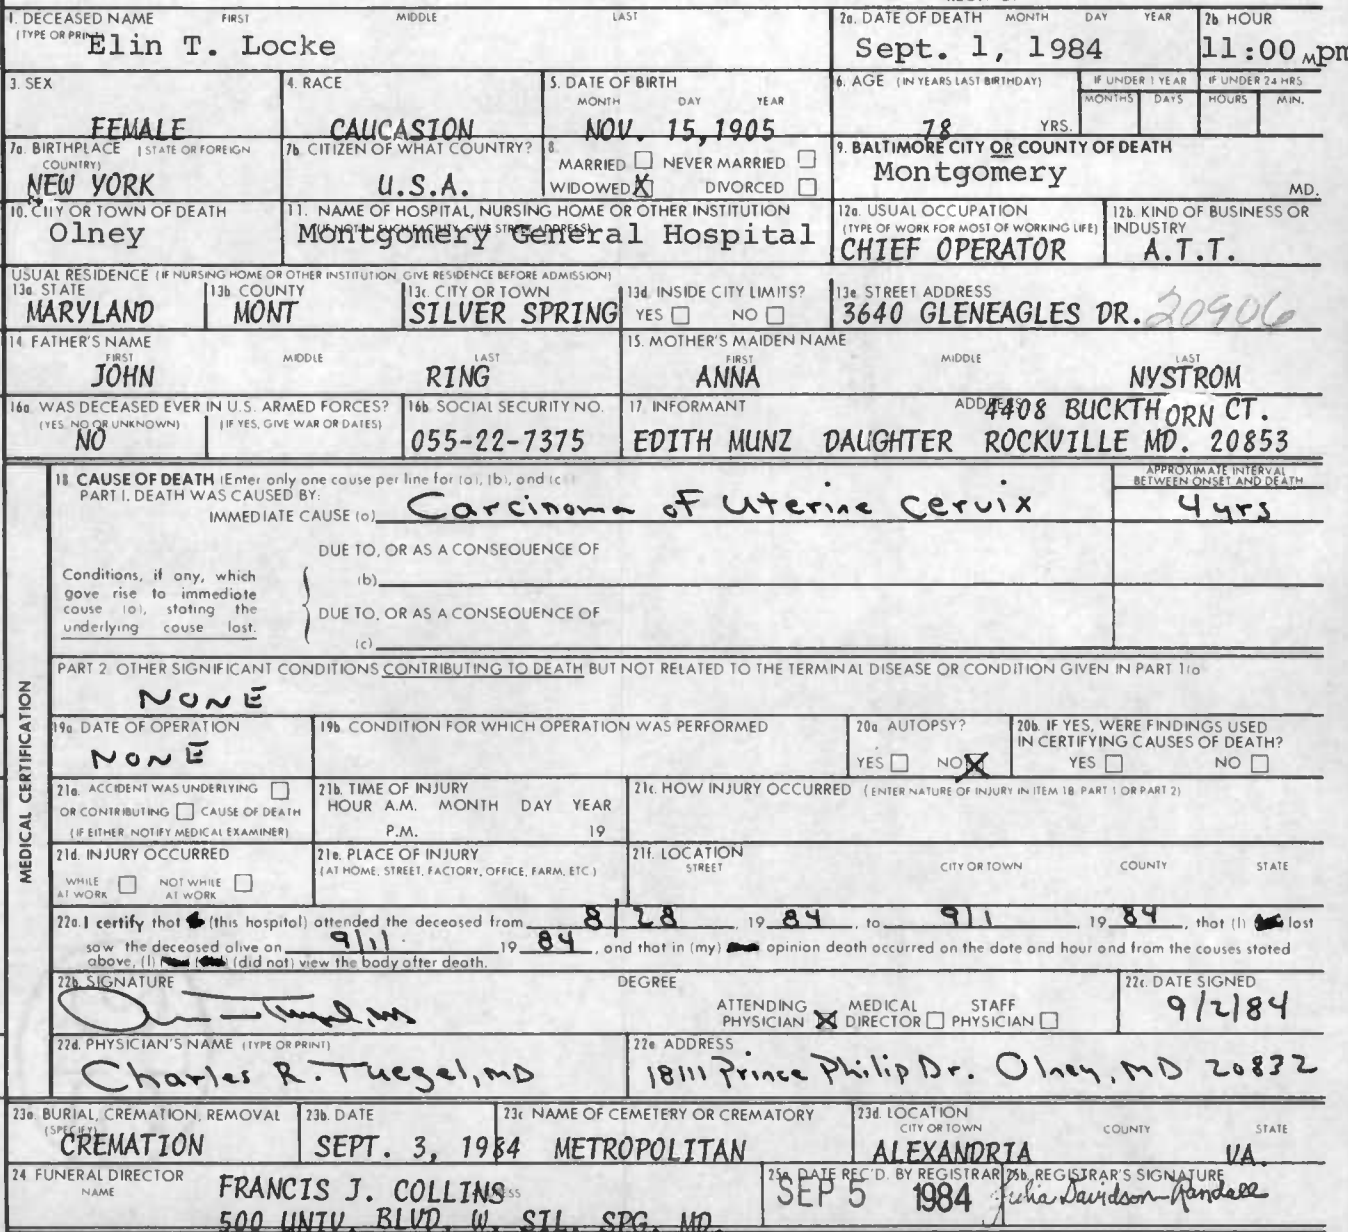 1. DECEASED NAME FIRST MIDDLE LAST
(TYPE OR PRINT) Elin T. Locke
2a. DATE OF DEATH MONTH DAY YEAR
Sept. 1, 1984
2b HOUR
11:00 M pm
3. SEX
FEMALE
4. RACE
CAUCASION
5. DATE OF BIRTH
MONTH DAY YEAR
NOV. 15, 1905
6. AGE (IN YEARS LAST BIRTHDAY)
78 YRS.
IF UNDER 1 YEAR
MONTHS DAYS
IF UNDER 24 HRS
HOURS MIN.
7a. BIRTHPLACE (STATE OR FOREIGN
COUNTRY)
NEW YORK
7b. CITIZEN OF WHAT COUNTRY?
U.S.A.
8
MARRIED NEVER MARRIED
WIDOWED X DIVORCED
9. BALTIMORE CITY OR COUNTY OF DEATH
Montgomery
MD.
10. CITY OR TOWN OF DEATH
Olney
11. NAME OF HOSPITAL, NURSING HOME OR OTHER INSTITUTION
(IF NOT IN SUCH FACILITY, GIVE STREET ADDRESS)
Montgomery General Hospital
12a. USUAL OCCUPATION
(TYPE OF WORK FOR MOST OF WORKING LIFE)
CHIEF OPERATOR
12b. KIND OF BUSINESS OR
INDUSTRY
A.T.T.
USUAL RESIDENCE (IF NURSING HOME OR OTHER INSTITUTION GIVE RESIDENCE BEFORE ADMISSION)
13a. STATE
MARYLAND
13b COUNTY
MONT
13c. CITY OR TOWN
SILVER SPRING
13d. INSIDE CITY LIMITS?
YES NO
13e STREET ADDRESS
3640 GLENEAGLES DR. 20906
14 FATHER'S NAME
FIRST MIDDLE LAST
JOHN RING
15. MOTHER'S MAIDEN NAME
FIRST MIDDLE LAST
ANNA NYSTROM
16a. WAS DECEASED EVER IN U.S. ARMED FORCES?
(YES, NO OR UNKNOWN) (IF YES, GIVE WAR OR DATES)
NO
16b SOCIAL SECURITY NO.
055-22-7375
17. INFORMANT ADDRESS 4408 BUCKTHORN CT.
EDITH MUNZ DAUGHTER ROCKVILLE MD. 20853
MEDICAL CERTIFICATION
18 CAUSE OF DEATH (Enter only one cause per line for (a), (b), and (c)
PART I. DEATH WAS CAUSED BY:
IMMEDIATE CAUSE (a) Carcinoma of Uterine Cervix
APPROXIMATE INTERVAL
BETWEEN ONSET AND DEATH
4 yrs
DUE TO, OR AS A CONSEQUENCE OF
(b)
DUE TO, OR AS A CONSEQUENCE OF
(c)
Conditions, if any, which
gave rise to immediate
cause (a), stating the
underlying cause last.
PART 2. OTHER SIGNIFICANT CONDITIONS CONTRIBUTING TO DEATH BUT NOT RELATED TO THE TERMINAL DISEASE OR CONDITION GIVEN IN PART 1(a
NONE
19a. DATE OF OPERATION
NONE
19b. CONDITION FOR WHICH OPERATION WAS PERFORMED
20a AUTOPSY?
YES NO X
20b. IF YES, WERE FINDINGS USED
IN CERTIFYING CAUSES OF DEATH?
YES NO
21a. ACCIDENT WAS UNDERLYING
OR CONTRIBUTING CAUSE OF DEATH
(IF EITHER, NOTIFY MEDICAL EXAMINER)
21b. TIME OF INJURY
HOUR A.M. MONTH DAY YEAR
P.M. 19
21c. HOW INJURY OCCURRED (ENTER NATURE OF INJURY IN ITEM 18 PART 1 OR PART 2)
21d. INJURY OCCURRED
WHILE AT WORK NOT WHILE AT WORK
21e. PLACE OF INJURY
(AT HOME, STREET, FACTORY, OFFICE, FARM, ETC.)
21f. LOCATION
STREET CITY OR TOWN COUNTY STATE
22a. I certify that (this hospital) attended the deceased from 8/28 19 84, to 9/1 19 84, that (I) last
saw the deceased alive on 9/1 19 84, and that in (my) opinion death occurred on the date and hour and from the causes stated
above, (I) (did not) view the body after death.
22b. SIGNATURE DEGREE
ATTENDING PHYSICIAN X MEDICAL DIRECTOR STAFF PHYSICIAN
22c. DATE SIGNED
9/2/84
22d. PHYSICIAN'S NAME (TYPE OR PRINT)
Charles R. Tuegel, MD
22e ADDRESS
18111 Prince Philip Dr. Olney, MD 20832
23a. BURIAL, CREMATION, REMOVAL
(SPECIFY)
CREMATION
23b. DATE
SEPT. 3, 1984
23c NAME OF CEMETERY OR CREMATORY
METROPOLITAN
23d. LOCATION
CITY OR TOWN COUNTY STATE
ALEXANDRIA VA.
24 FUNERAL DIRECTOR
NAME FRANCIS J. COLLINS
500 UNIV. BLVD. W. SIL. SPG. MD.
25a. DATE REC'D. BY REGISTRAR
SEP 5 1984
25b. REGISTRAR'S SIGNATURE
Julia Davidson-Randall